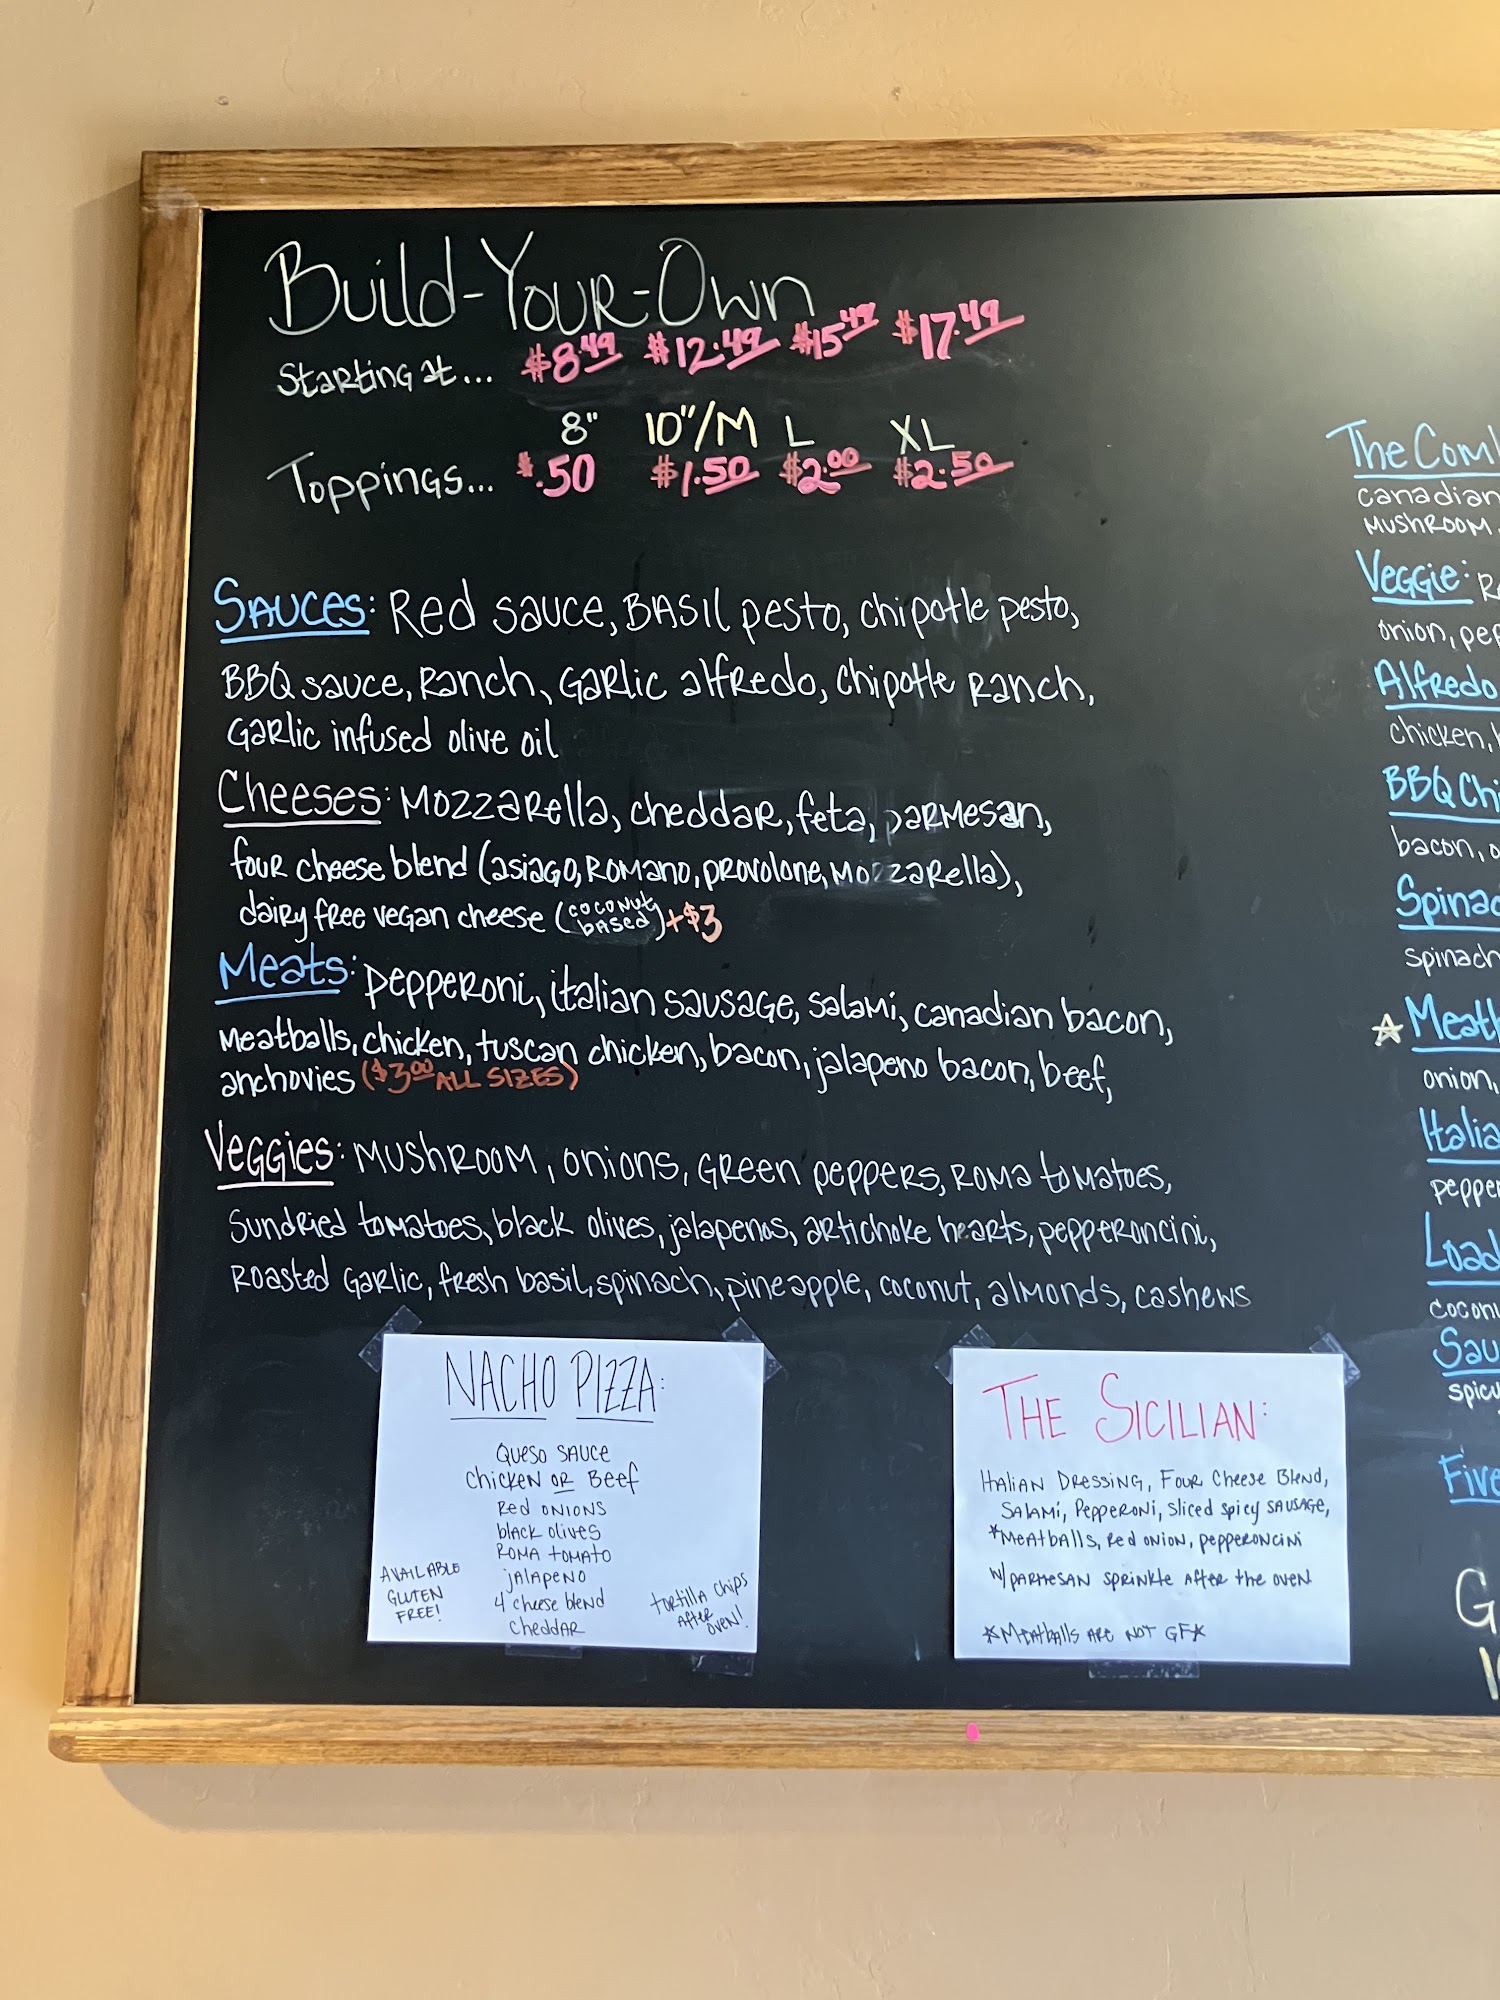 Build-Your-Own
Starting at... $8.49 $12.49 $15.49 $17.49
8" 10"/M L XL
Toppings... $.50 $1.50 $2.00 $2.50
Sauces: Red sauce, Basil pesto, chipotle pesto,
BBQ sauce, Ranch, Garlic alfredo, Chipotle Ranch,
Garlic infused olive oil
Cheeses: Mozzarella, cheddar, feta, parmesan,
four cheese blend (asiago, Romano, provolone, Mozzarella),
dairy free vegan cheese (coconut based) +$3
Meats: pepperoni, italian sausage, salami, canadian bacon,
Meatballs, chicken, tuscan chicken, bacon, jalapeno bacon, beef,
anchovies ($3.00 ALL SIZES)
Veggies: Mushroom, onions, Green peppers, Roma tomatoes,
Sundried tomatoes, black olives, jalapenos, artichoke hearts, pepperoncini,
Roasted Garlic, fresh basil, spinach, pineapple, coconut, almonds, cashews
NACHO PIZZA:
Queso sauce
Chicken or Beef
Red onions
black olives
Roma tomato
jalapeno
4 cheese blend
Cheddar
AVAILABLE
GLUTEN
FREE!
tortilla chips
after
oven!
THE SICILIAN:
Italian Dressing, Four Cheese Blend,
Salami, Pepperoni, sliced spicy sausage,
*Meatballs, red onion, pepperoncini
w/ parmesan sprinkle after the oven
*Meatballs are not GF*
The
canadian
Mushroom,
Veggie:
onion,
Alfredo
chicken,
BBQ
bacon,
spinach
onion,